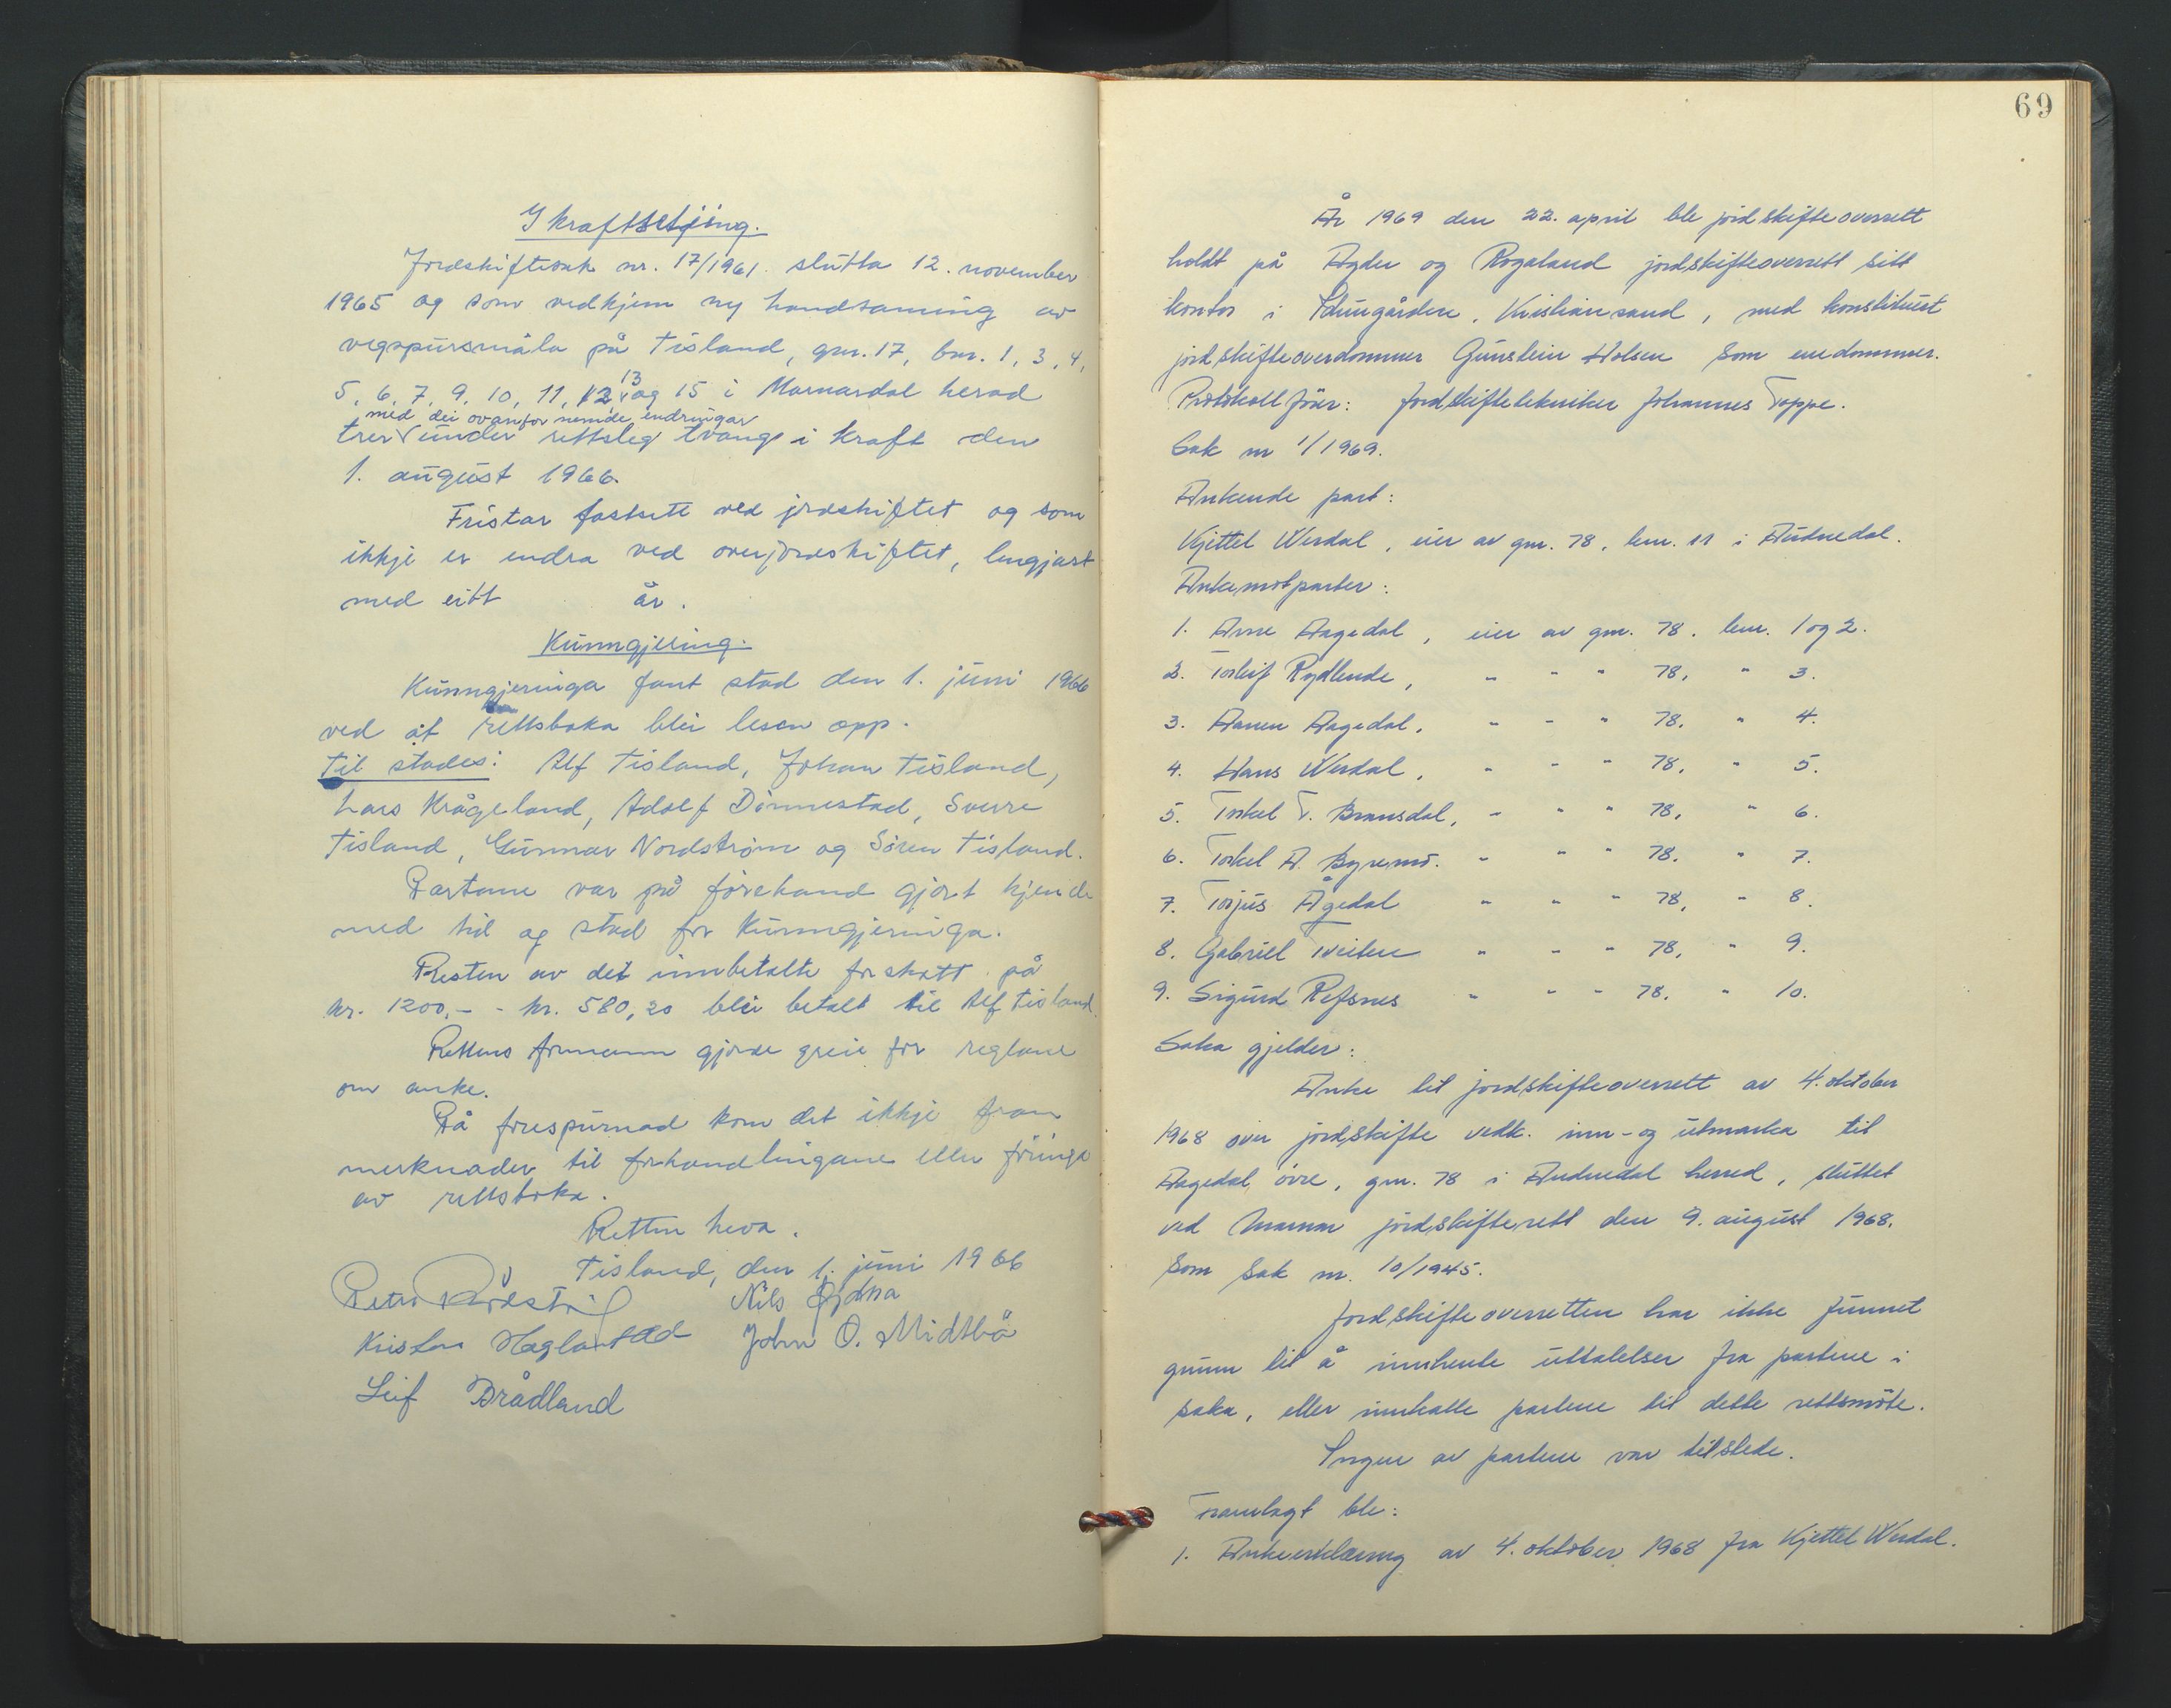 Ikraftsetjing.
Jordskiftesak nr. 17/1961 slutta 12. november
1965 og som vedkjem ny handsaming av
vegspursmåla på Tisland, gnr. 17, bnr. 1, 3, 4,
5, 6, 7, 9, 10, 11, 12, 13 og 15 i Marnardal herad
med dei ovanfor nemnde endringar
trer under rettsleg tvang i kraft den
1. august 1966.
Fristar fastsett ved jordskiftet og som
ikkje er endra ved overjordskiftet, lengjast
med eitt år.
Kunngjering.
Kunngjeringa fant stad den 1. juni 1966
ved at rettsboka blei lesen opp.
Til stades: Alf Tisland, Johan Tisland,
Lars Krågeland, Adolf Dønnestad, Sverre
Tisland, Gunnar Nordstrøm og Søren Tisland.
Partane var på førehand gjort kjende
med tid og stad for kunngjeringa.
Resten av det innbetalte forskott på
kr. 1200,- - kr. 580,20 blei betalt til Alf Tisland.
Rettens formann gjorde greie for reglane
om anke.
På forespurnad kom det ikkje fram
merknader til forhandlingane eller føringa
av rettsboka.
Retten heva.
Tisland, den 1. juni 1966
Nils
Kristen Haglastad John O. Midtbø
Leif Brådland
69
År 1969 den 22. april ble jordskifteoverrett
holdt på Agder og Rogaland jordskifteoverrett sitt
kontor i Idungården, Kristiansand, med konstituert
jordskifteoverdommer Gunstein Holsen som enedommer.
Protokollfører: Jordskiftetekniker Johannes Toppe.
Sak nr 1/1969.
Ankende part:
Kjettel Verdal, eier av gnr. 78, bnr. 11 i Audnedal.
Ankemotparter:
1. Arne Aagedal, eier av gnr. 78, bnr. 1 og 2.
2. Torleif Rydlende, " " " 78, " 3.
3. Aanen Aagedal, " " " 78, " 4.
4. Hans Verdal, " " " 78, " 5.
5. Torkel T. Bransdal, " " " 78, " 6.
6. Torkel A. Byremo. " " " 78. " 7.
7. Torjus Ågedal " " " 78, " 8.
8. Gabriel Tveiten " " " 78, " 9.
9. Sigurd Refsnes " " " 78. " 10.
Saka gjelder:
Anke til jordskifteoverrett av 4. oktober
1968 over jordskifte vedk. inn- og utmarka til
Aagedal øvre, gnr. 78 i Audnedal herred, sluttet
ved Marnar jordskifterett den 9. august 1968.
som sak nr. 10/1945.
Jordskifteoverretten har ikke funnet
grunn til å innhente uttalelser fra partene i
saka, eller innkalle partene til dette rettsmøte.
Ingen av partene var tilstede.
Framlagt ble:
1. Ankeerklæring av 4. oktober 1968 fra Kjettel Verdal.